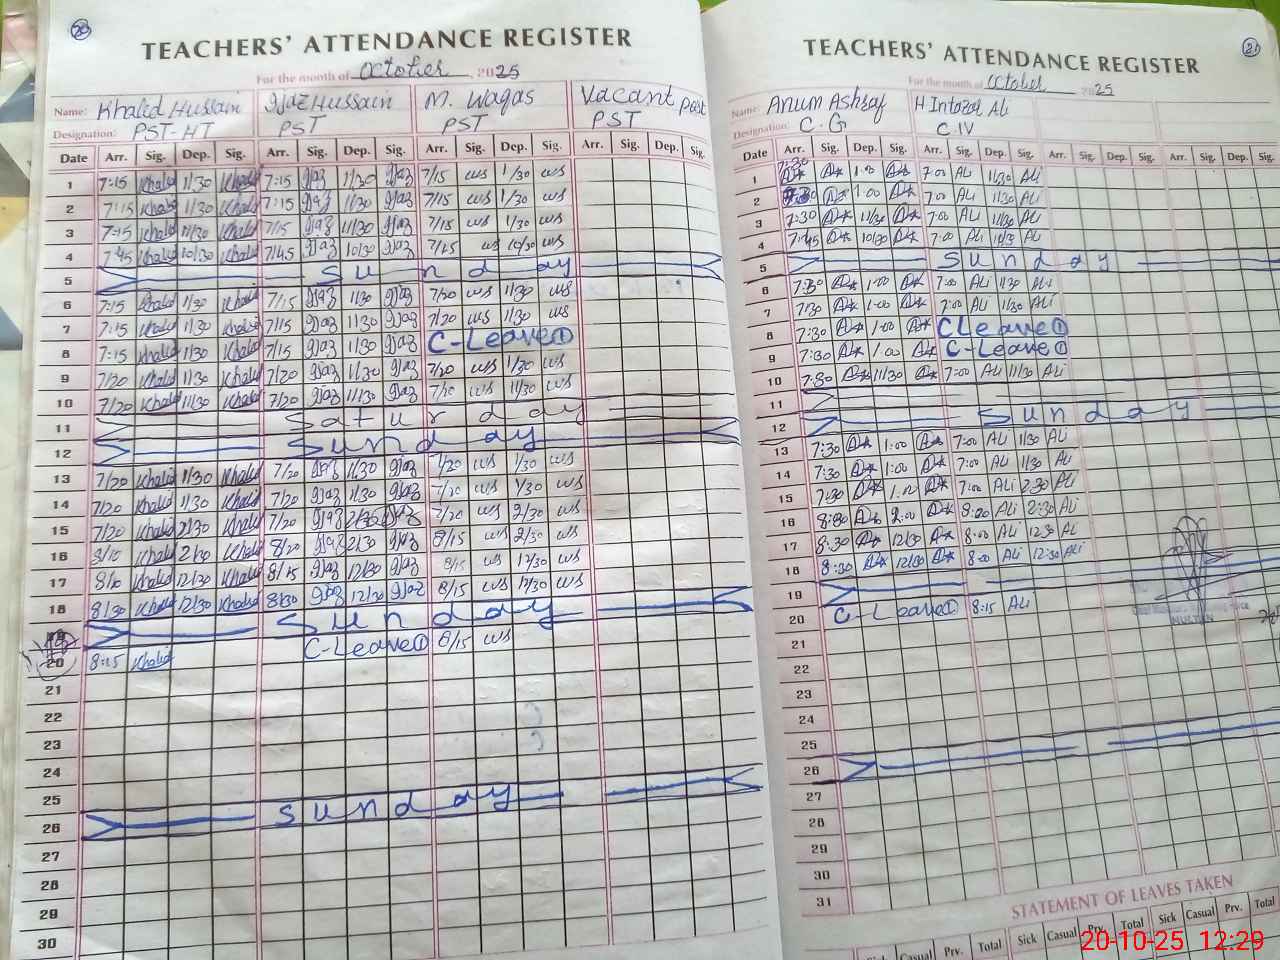 20
TEACHERS' ATTENDANCE REGISTER
For the month of October 2025
Name: Khalid Hussain Ijaz Hussain M. Waqas Vacant Post
Designation: PST-HT PST PST PST
Date Arr. Sig. Dep. Sig. Arr. Sig. Dep. Sig. Arr. Sig. Dep. Sig. Arr. Sig. Dep. Sig.
1 7:15 Khalid 11/30 Khalid 7:15 Ijaz 11/30 Ijaz 7/15 ws 1/30 ws
2 7:15 Khalid 11/30 Khalid 7:15 Ijaz 11/30 Ijaz 7/15 ws 1/30 ws
3 7:15 Khalid 11/30 Khalid 7/15 Ijaz 11/30 Ijaz 7/15 ws 1/30 ws
4 7:45 Khalid 10/30 Khalid 7/45 Ijaz 10/30 Ijaz ws 10/30 ws
5 Sunday
6 7:15 Khalid 1/30 Khalid 7/15 Ijaz 11/30 Ijaz 7/20 ws 11/30 ws
7 7:15 Khalid 11/30 Khalid 7/15 Ijaz 11/30 Ijaz 7/20 ws 11/30 ws
8 7:15 Khalid 11/30 Khalid 7/15 Ijaz 11/30 Ijaz C-Leave 1
9 7/20 Khalid 11/30 Khalid 7/20 Ijaz 11/30 Ijaz 7/20 ws 1/30 ws
10 7/20 Khalid 11/30 Khalid 7/20 Ijaz 11/30 Ijaz 7/20 ws 11/30 ws
11 Saturday
12 Sunday
13 7/20 Khalid 11/30 Khalid 7/20 Ijaz 11/30 Ijaz 7/20 ws 1/30 ws
14 7/20 Khalid 11/30 Khalid 7/20 Ijaz 11/30 Ijaz 7/20 ws 1/30 ws
15 7/20 Khalid 2/30 Khalid 7/20 Ijaz Ijaz 7/20 ws 2/30 ws
16 8/15 Khalid Khalid 8/20 Ijaz 2/30 Ijaz 8/15 ws 2/30 ws
17 Khalid 12/30 Khalid 8/15 Ijaz 12/30 Ijaz 8/15 ws 12/30 ws
18 8/30 Khalid 12/30 Khalid 8/30 Ijaz 12/30 Ijaz 8/15 ws 12/30 ws
19 Sunday
20 8:15 Khalid C-Leave 1 8/15 ws
21
22
23
24
25
26 Sunday
27
28
29
30
21
TEACHERS' ATTENDANCE REGISTER
For the month of October 2025
Name: Anum Ashraf H Intazar Ali
Designation: C.G C.IV
Date Arr. Sig. Dep. Sig. Arr. Sig. Dep. Sig. Arr. Sig. Dep. Sig. Arr. Sig. Dep. Sig.
1 7:30 1:00 7:00 Ali 11/30 Ali
2 1:00 7:00 Ali 11/30 Ali
3 7:30 11/30 7:00 Ali 11/30 Ali
4 7:45 10/30 7:00 Ali 10/30 Ali
5 Sunday
6 7:30 1:00 7:00 Ali 11/30 Ali
7 7:30 1:00 7:00 Ali 11/30 Ali
8 7:30 1:00 C Leave 1
9 7:30 1:00 C-Leave 1
10 7:30 11/30 7:00 Ali 11/30 Ali
11
12 Sunday
13 7:30 1:00 7:00 Ali 11/30 Ali
14 7:30 1:00 7:00 Ali 11/30 Ali
15 7:30 1:00 7:00 Ali 2:30 Ali
16 8:30 2:00 8:00 Ali 2:30 Ali
17 8:30 12/30 8:00 Ali 12:30 Ali
18 8:30 12/30 8:00 Ali 12:30 Ali
19
20 C-Leave 1 8:15 Ali
21
22
23
24
25
26
27
28
29
30
31
MULTAN
STATEMENT OF LEAVES TAKEN
Sick Casual Prv. Total Sick Casual Prv. Total Sick Casual Prv. Total
20-10-25 12:29